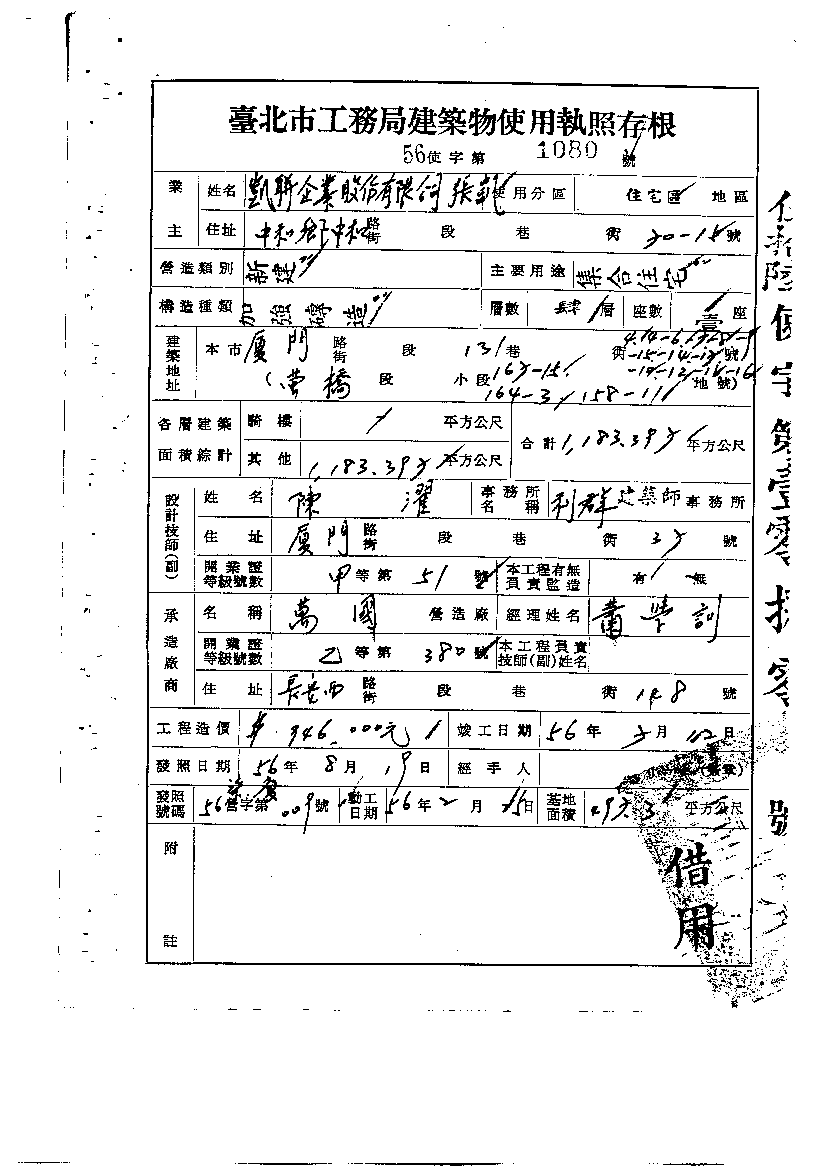 臺北市工務局建築物使用執照存根
56使字第 1080 號
業主 姓名 凱聯企業股份有限公司 張乾 使用分區 住宅區 地區
住址 中和鄉中和 路街 段 巷 街 20-15號
營造類別 新建 主要用途 集合住宅
構造種類 加強磚造 層數 肆 層 座數 壹 座
建築地址 本市 厦門 路街 段 131巷 街 號
段 小段 164-3 158-11 地號)
各層建築面積綜計 騎樓 平方公尺 合計 1,183.39 平方公尺
其他 1,183.39 平方公尺
設計技師(副) 姓名 陳濯 事務所名稱 利群建築師事務所
住址 厦門 路街 段 巷 街 號
開業證等級號數 甲等第 51 號 本工程有無負責監造 有 無
承造廠商 名稱 萬國 營造廠 經理姓名 蕭學訓
開業證等級號數 乙等第 380號 本工程負責技師(副)姓名
住址 長安西 路街 段 巷 街 148 號
工程造價 946,000元 竣工日期 56年 月 12日
發照日期 56年 8月 19日 經手人
發照號碼 56營字第 009號 動工日期 56年 2月 15日 基地面積 平方公尺
附註
借用
伍拾陸使字第壹零捌零號